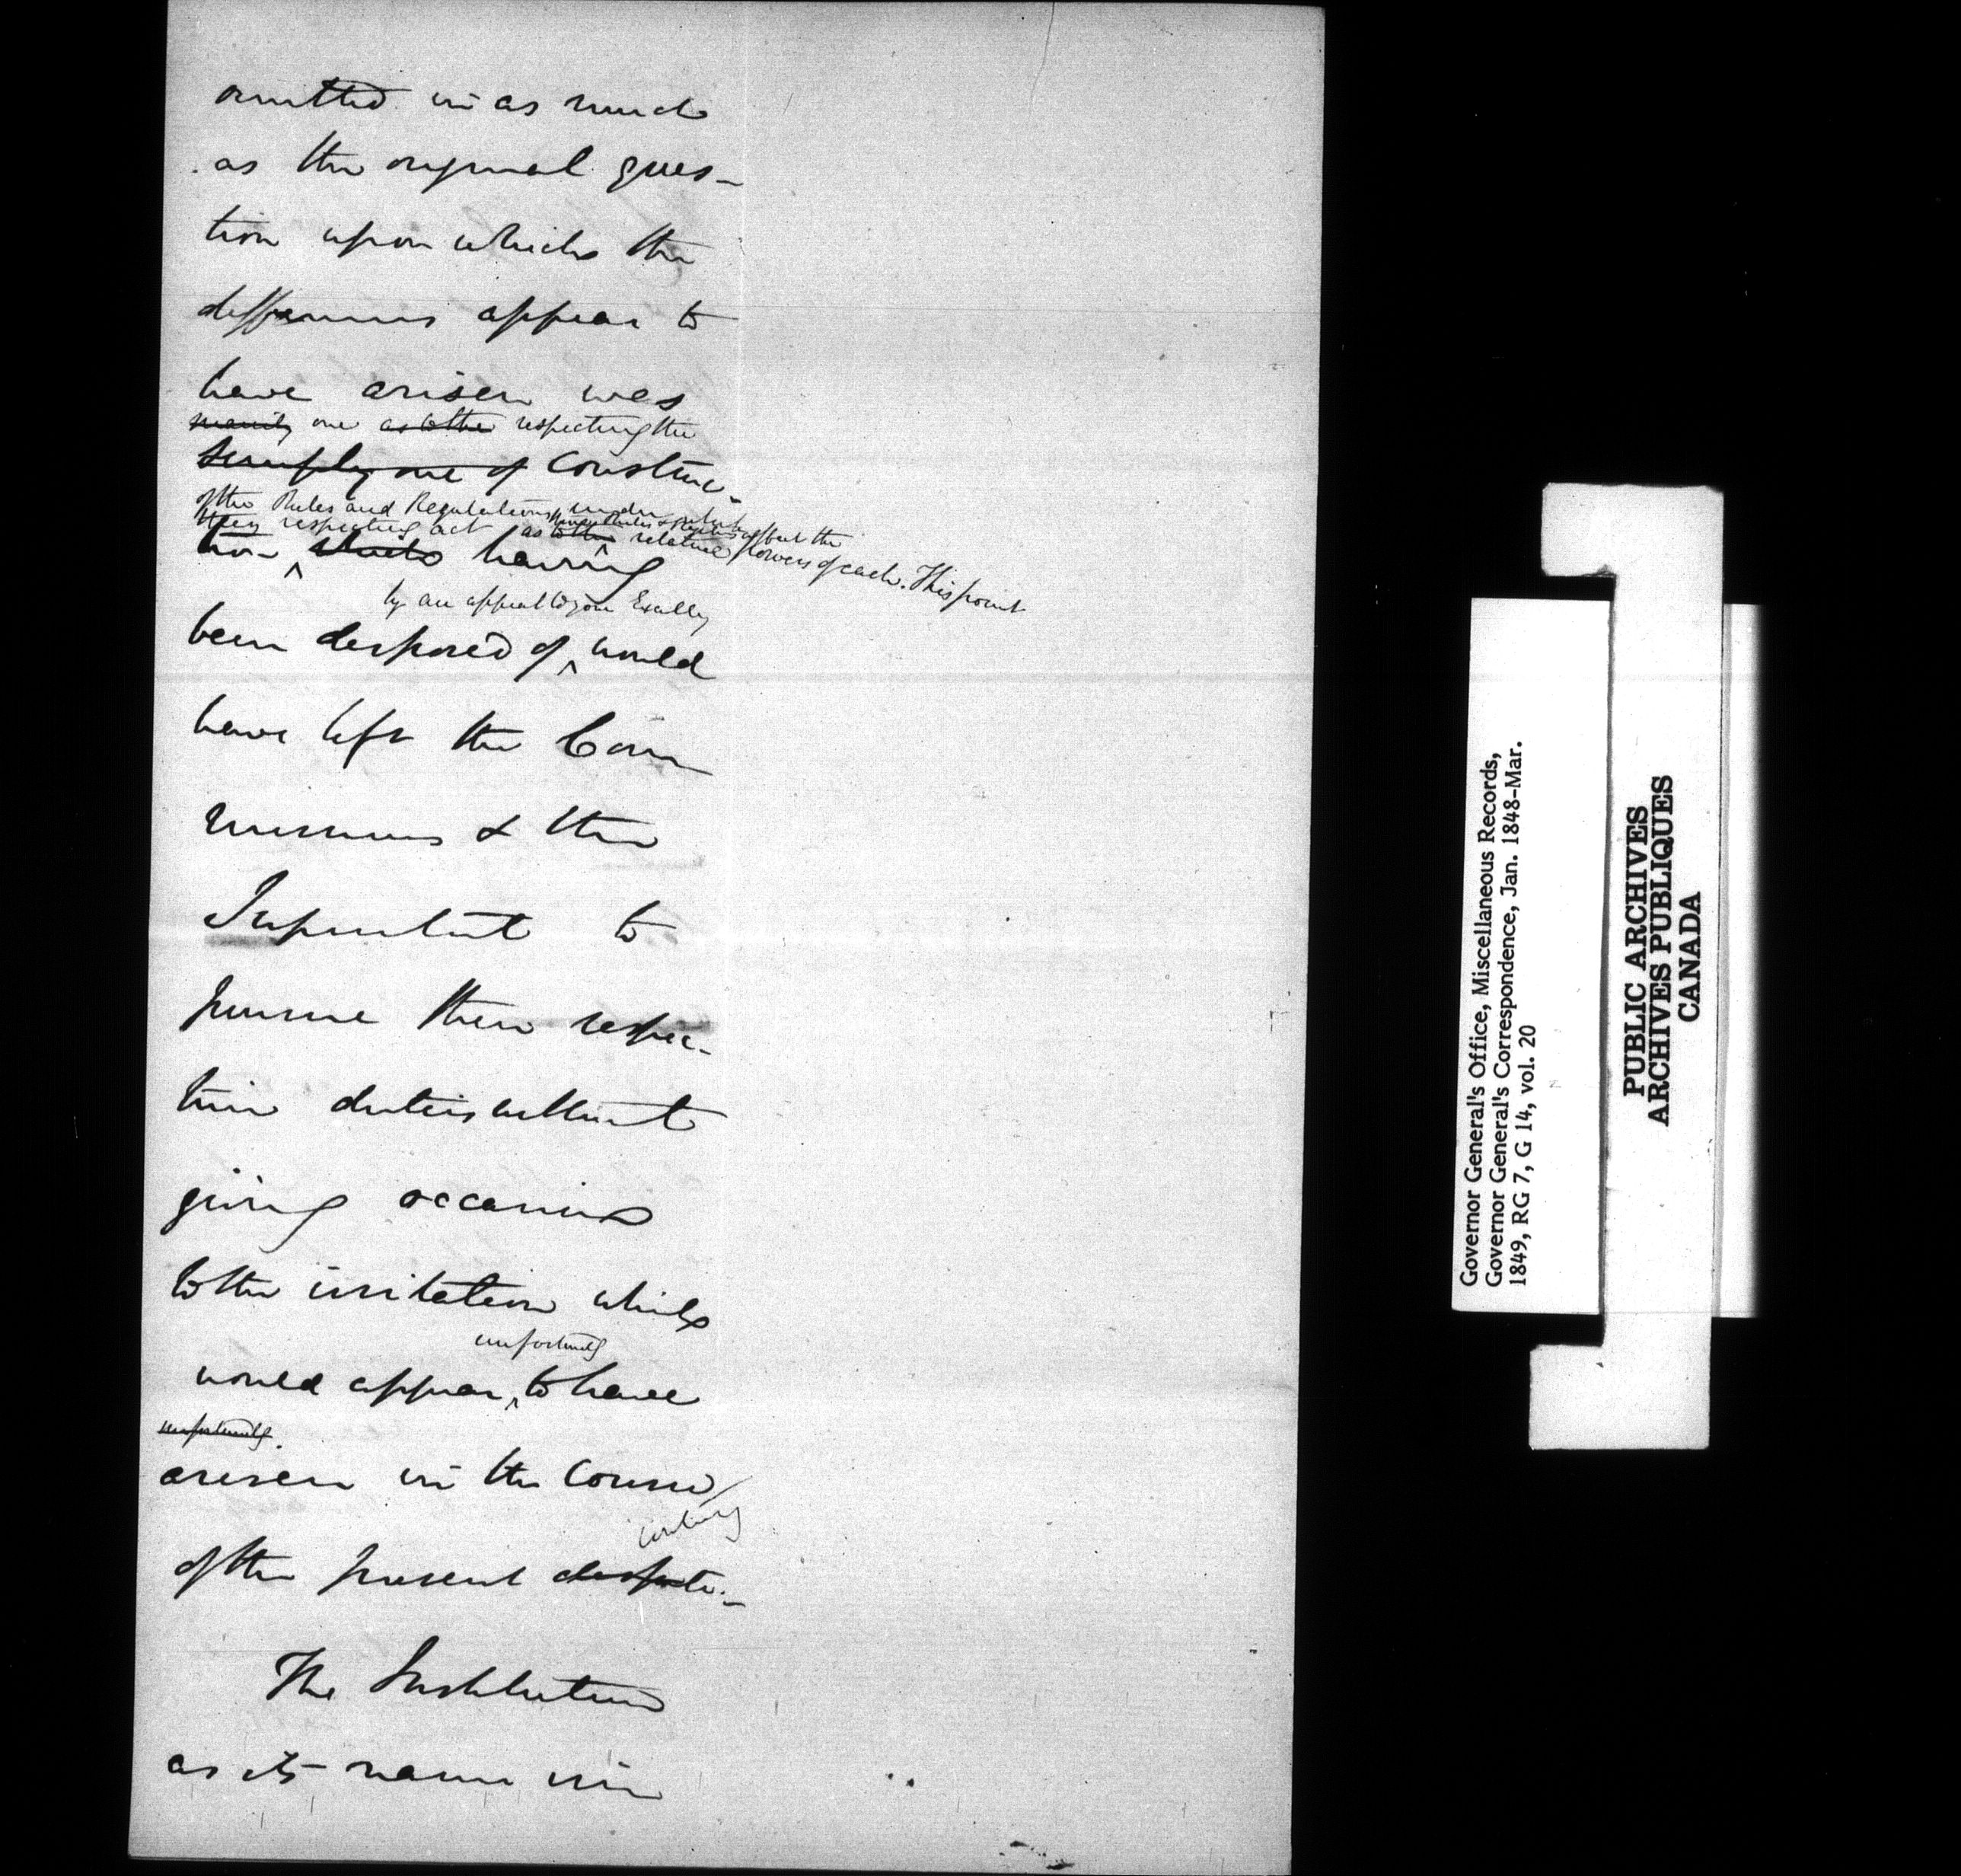 omitted in as much
as the original ques-
tion upon which the
differences appear to
have arisen was
one as to the respecting the
simply one of construc-
of the Rules and Regulations under which
they respecting act as to the relative powers of each. This point
tion which having
by an appeal to your Excelly
been disposed of would
have left the Com
missioners & the
Supentent to
pursue their respec-
tive duties without
giving occasion
to the irritation which
unfortunately
would appear to have
unfortunately
arisen in the course
of the present dispute.
The Institution
as its name im
Governor General's Office, Miscellaneous Records,
Governor General's Correspondence, Jan. 1848-Mar.
1849, RG 7, G 14, vol. 20
PUBLIC ARCHIVES
ARCHIVES PUBLIQUES
CANADA